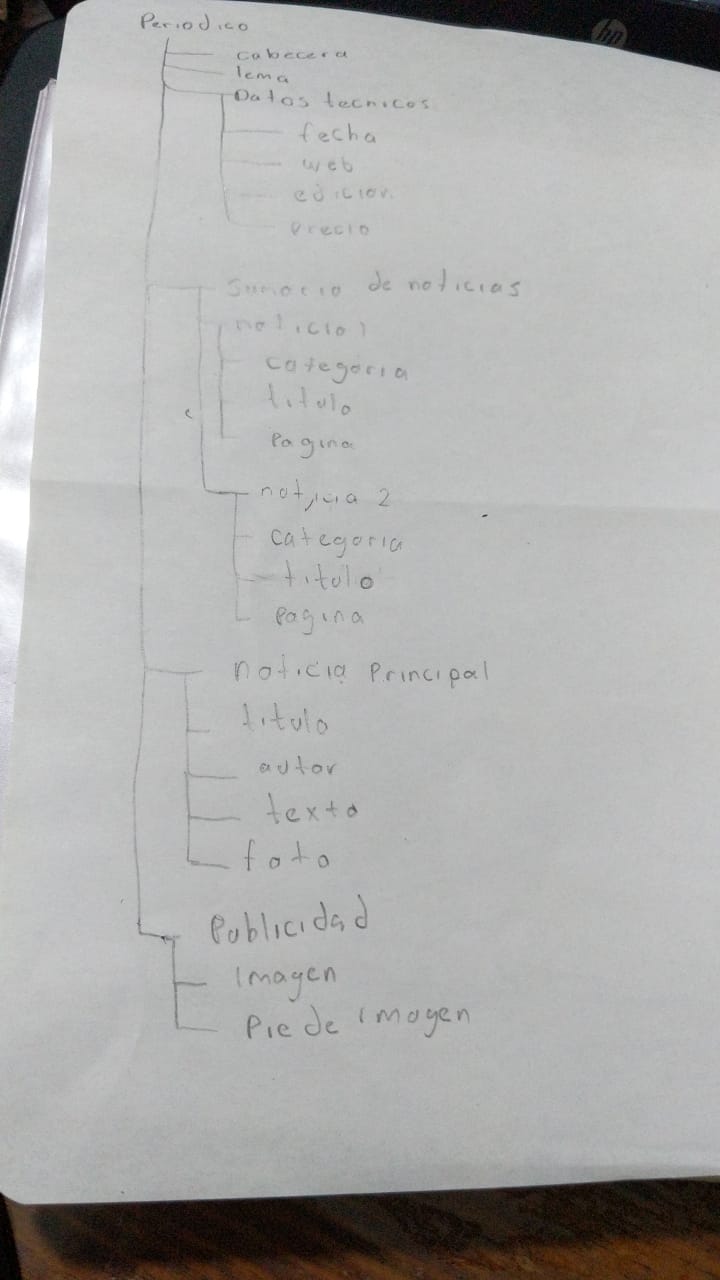 hp
Periodico
cabecera
lema
Datos tecnicos
fecha
web
edicion
precio
Sumario de noticias
noticia 1
categoria
titulo
Pagina
noticia 2
categoria
titulo
Pagina
noticia Principal
titulo
autor
texto
foto
Publicidad
Imagen
Pie de imagen